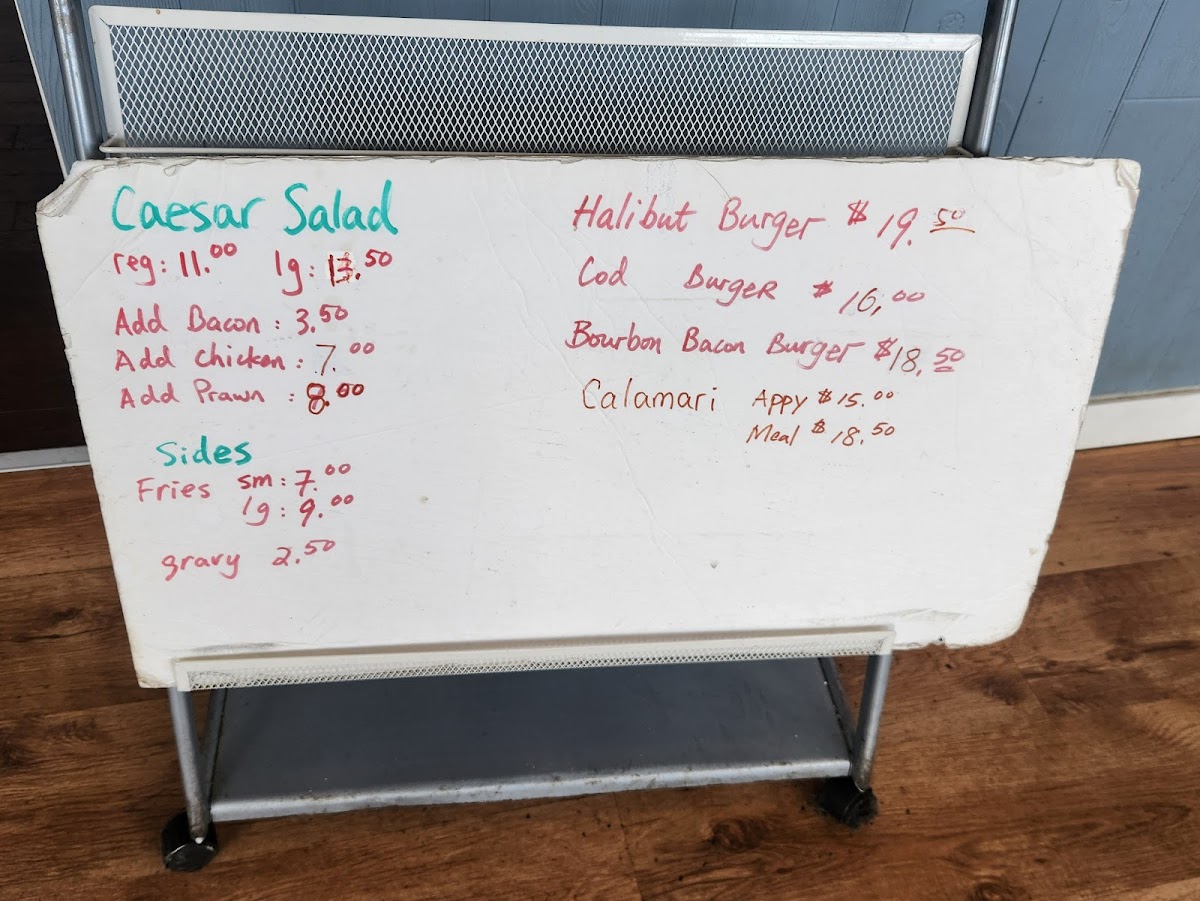 Caesar Salad
reg: 11.00 lg: 13.50
Add Bacon : 3.50
Add chicken : 7.00
Add Prawn : 8.00
Sides
Fries sm: 7.00
lg: 9.00
gravy 2.50
Halibut Burger $19.50
Cod Burger $16,00
Bourbon Bacon Burger $18.50
Calamari Appy $15.00
Meal $18.50